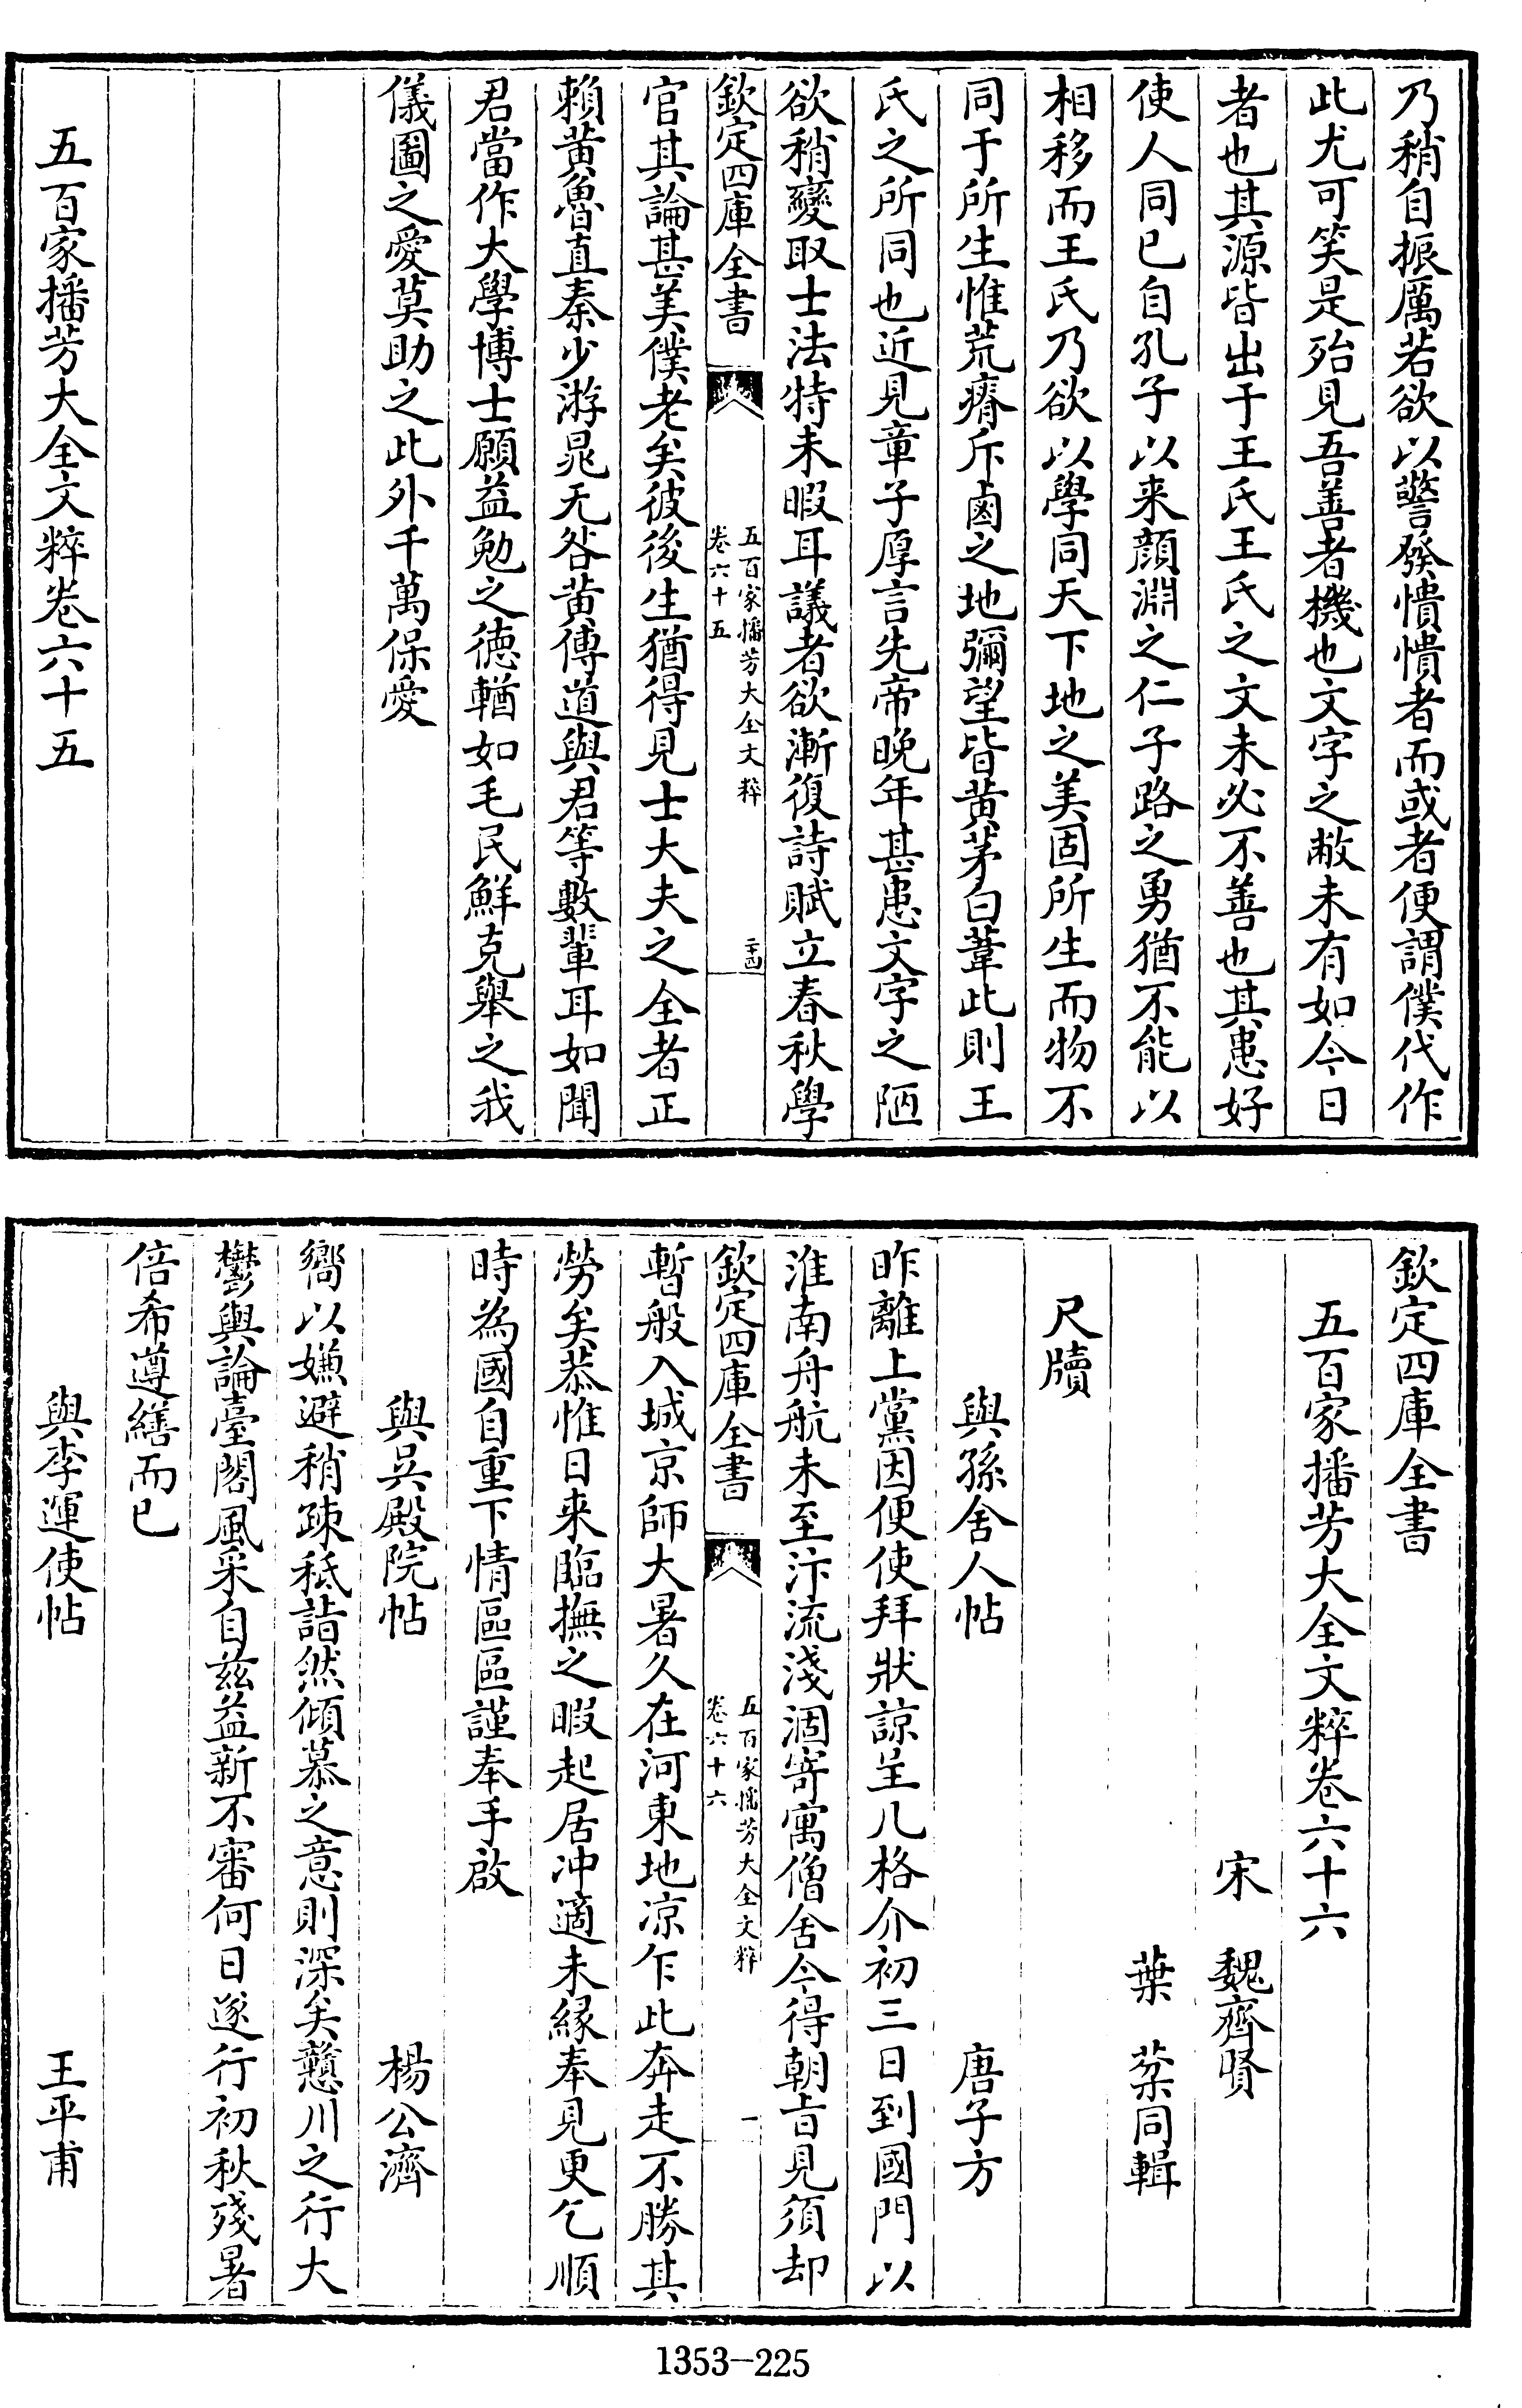 乃稍自振厲若欲以警發憒憒者而或者便謂僕代作
此尤可笑是殆見吾善者機也文字之敝未有如今日
者也其源皆出于王氏王氏之文未必不善也其患好
使人同已自孔子以来顔淵之仁子路之勇猶不能以
相移而王氏乃欲以學同天下地之美固所生而物不
同于所生惟荒瘠斥鹵之地彌望皆黄茅白葦此則王
氏之所同也近見章子厚言先帝晚年甚患文字之陋
欲稍變取士法特未暇耳議者欲漸復詩賦立春秋學
欽定四庫全書
五百家播芳大全文粹
卷六十五
二十四
官其論甚美僕老矣彼後生猶得見士大夫之全者正
賴黄魯直秦少游晁无咎黄傅道與君等數輩耳如聞
君當作大學博士願益勉之徳輶如毛民鮮克舉之我
儀圖之愛莫助之此外千萬保愛
五百家播芳大全文粹卷六十五
欽定四庫全書
五百家播芳大全文粹卷六十六
宋 魏齊賢
葉 棻同輯
尺牘
與孫舍人帖 唐子方
昨離上黨因便使拜狀諒呈几格介初三日到國門以
淮南舟航未至汴流淺涸寄寓僧舍今得朝旨見須却
欽定四庫全書
五百家播芳大全文粹
卷六十六
一
暫般入城京師大暑久在河東地凉乍此奔走不勝其
勞矣恭惟日来臨撫之暇起居冲適未縁奉見更乞順
時為國自重下情區區謹奉手啟
與吳殿院帖 楊公濟
嚮以嫌避稍疎秪詣然傾慕之意則深矣戇川之行大
鬱輿論臺閣風采自兹益新不審何日遂行初秋殘暑
倍希遵繕而已
與李運使帖 王平甫
1353-225